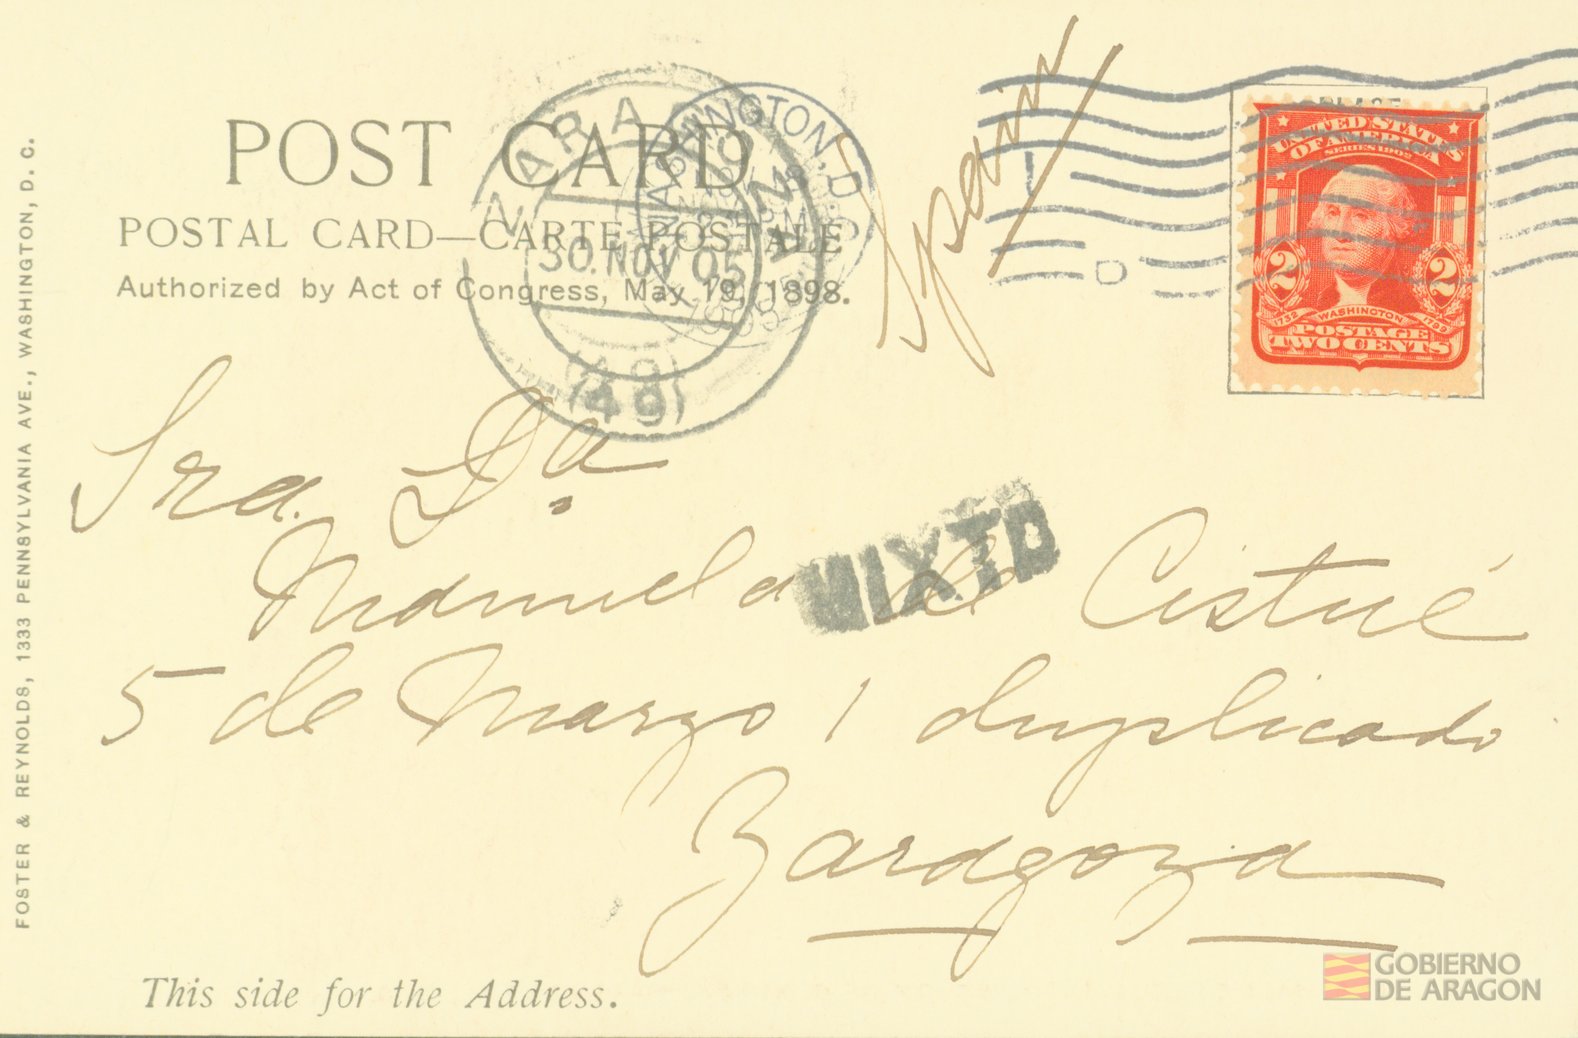 POST CARD
POSTAL CARD—CARTE POSTALE
Authorized by Act of Congress, May 19, 1898.
FOSTER & REYNOLDS, 1333 PENNSYLVANIA AVE., WASHINGTON, D. C.
WASHINGTON, D.C.
30.NOV 05
(49)
Spain
PLACE
UNITED STATES
OF AMERICA
SERIES 1902
2 2
1732 WASHINGTON 1799
POSTAGE
TWO CENTS
Sra. Dª
MIXTO
Manuela de Cistué
5 de Marzo 1 duplicado
Zaragoza
This side for the Address.
GOBIERNO
DE ARAGON